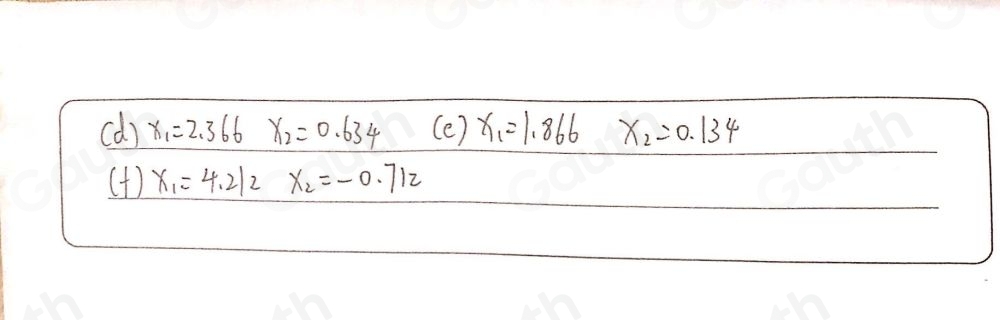 (d) x₁=2.366 x₂=0.634 (e) x₁=1.866 x₂=0.134
(f) x₁=4.212 x₂=-0.712